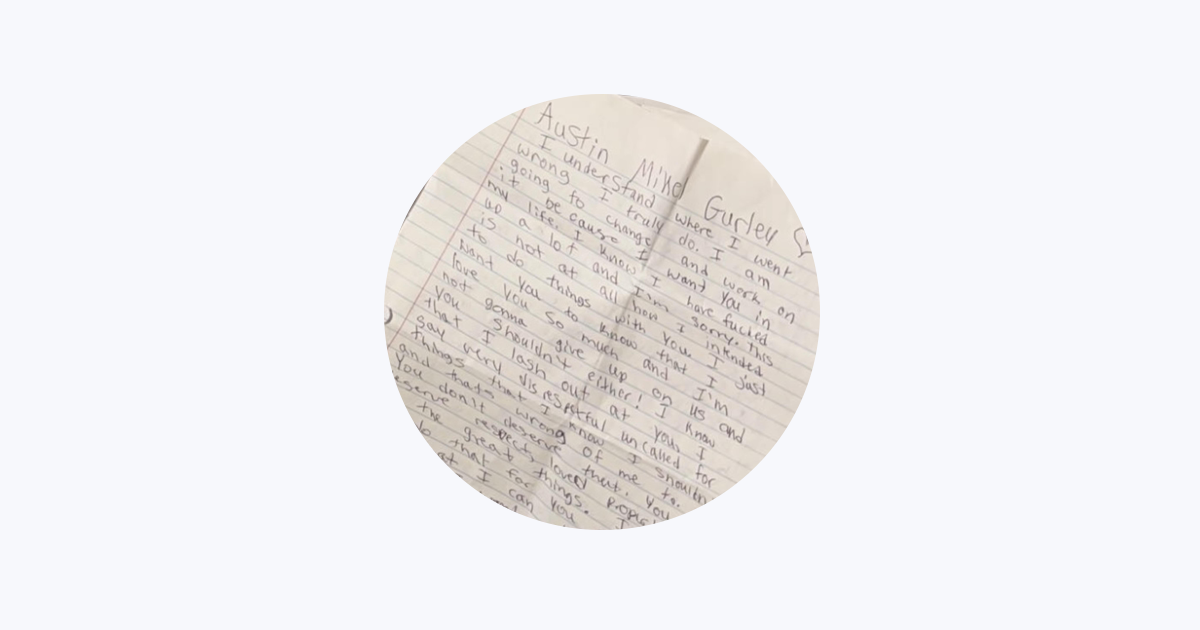 Austin Mike Gurley
I understand where I went
wrong I truly do. I am
going to change and work on
it because I want you in
my life. I know I have fucked
up a lot and I'm sorry. This
is not at all how I intended
to do things with you. I just
want you to know that I
love you so much and I'm
not gonna give up on us and
you shouldn't either! I know
that I lash out at you I
say very disrespectful uncalled for
things that I know I shouldn
and thats wrong of me to.
You don't deserve that. You
eserve respect, loved
the great things. I
that for you
at I can